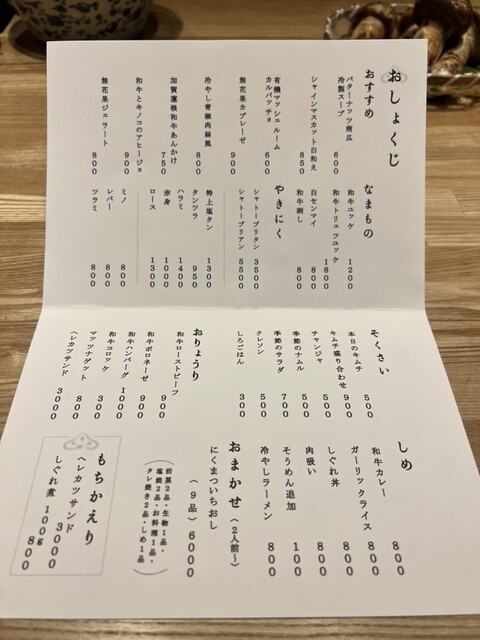 おしょくじ
おすすめ
バターナッツ南瓜
冷製スープ 600
シャインマスカット白和え 850
有機マッシュルーム
カルパッチョ 600
無花果カプレーゼ 900
冷やし青椒肉絲風 800
加賀蓮根和牛あんかけ 750
和牛とキノコのアヒージョ 900
無花果ジェラート 800
なまもの
和牛ユッケ 1200
和牛トリュフユッケ 1800
白センマイ 800
和牛刺し 800
やきにく
シャトーブリタン 3500
シャトーブリアン 5500
特上塩タン 1300
タンツラ 950
ハラミ 1400
赤身 1000
ロース 1300
ミノ 800
レバー 800
ツラミ 800
そくさい
本日のキムチ 500
キムチ盛り合わせ 900
チャンジャ 500
季節のナムル 500
季節のサラダ 700
クレソン 500
しろごはん 300
おりょうり
和牛ローストビーフ 900
和牛ボロネーゼ 900
和牛ハンバーグ 1000
和牛コロッケ 300
マッツナゲット 800
ヘレカツサンド 3000
しめ
和牛カレー 800
ガーリックライス 800
しぐれ丼 800
肉吸い 800
そうめん追加 100
冷やしラーメン 800
おまかせ(2人前〜)
にくまついちおし
(9品) 6000
(前菜2品・生物1品・
塩焼2品・お料理1品・
タレ焼き2品・しめ1品)
もちかえり
ヘレカツサンド 3000
しぐれ煮 100g 800